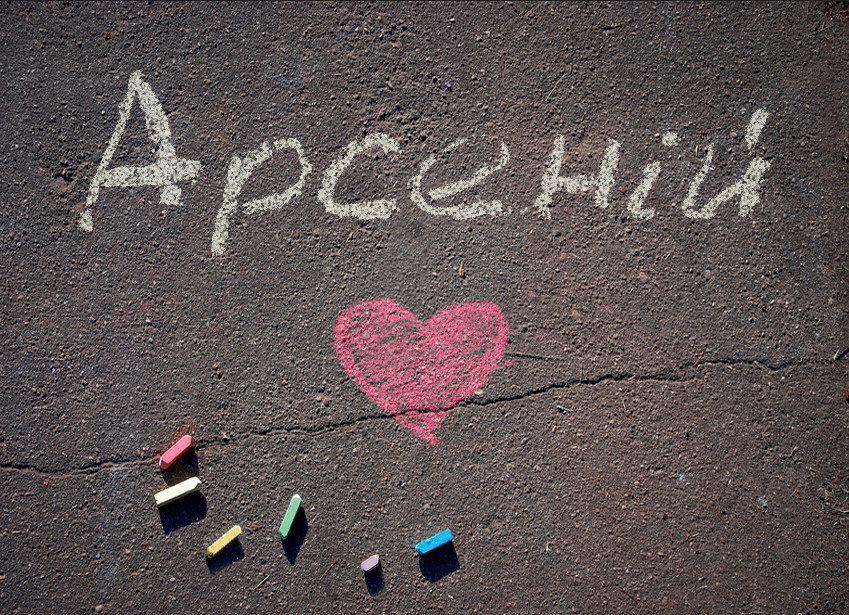 Арсеній